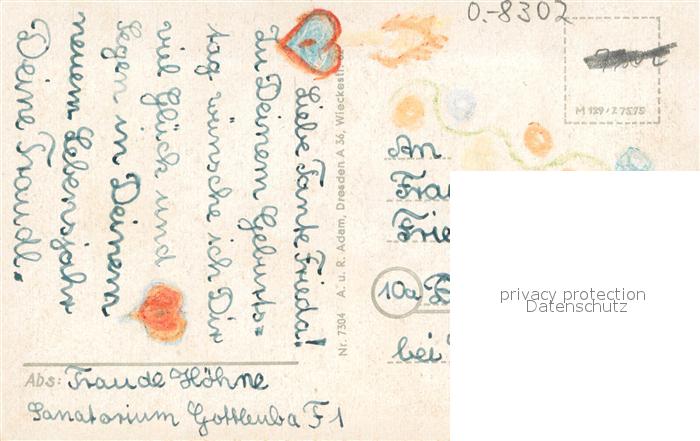 Liebe Tante Frieda!
Zu Deinem Geburts=
tag wünsche ich Dir
viel Glück und
Segen in Deinem
neuem Lebensjahr
Deine Traudl.
Abs: Traude Höhne
Sanatorium Gottleuba F 1
Nr. 7304 A. u. R. Adam, Dresden A 36, Wieckestr.
0.-8302
M 129/Z 7575
An
Frau
Frie
10a
bei
privacy protection
Datenschutz